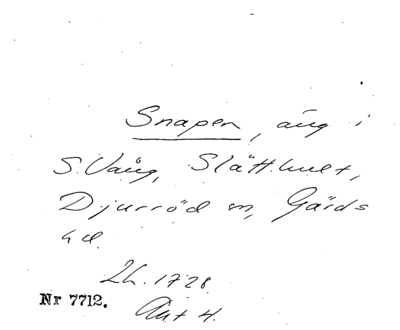 Snapen, äng i
S. Vång, Slätthult,
Djurröd sn, Gärds
hd.
Lh. 1728
Nr 7712. Akt 4.